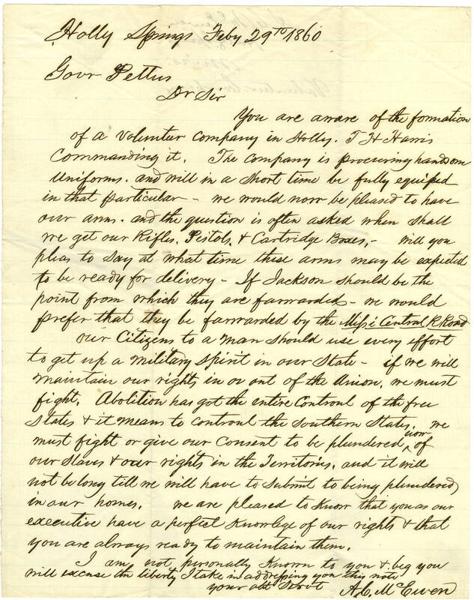 Holly Springs Feby 29th 1860
Govr Pettus
Dr Sir
You are aware of the formation
of a volunteer company in Holly. T H Harris
Commanding it. The company is procuring handsom
Uniforms. and will in a short time be fully equiped
in that particular - we would now be pleased to have
our arms. and the question is often asked when shall
we get our Rifles, Pistols, & Cartridge Boxes, - will you
pleas to say at what time these arms may be expected
to be ready for delivery - If Jackson should be the
point from which they are farwarded - we would
prefer that they be farwarded by the Missi Central R Road
our Citizens to a man should use every effort
to get up a military spirit in our State - if we will
maintain our rights in or out of the Union, we must
fight. Abolition has got the entire Controul of the free
States & it means to controul the Southern States. we
must fight or give our consent to be plundered now of
our Slaves & our rights in the Territories, and it will
not be long till we will have to submit to being plundered
in our homes. we are pleased to know that you as our
executive have a perfect knowledge of our rights & that
you are always ready to maintain them.
I am not personally known to you & beg you
will excuse the liberty I take in addressing you this note
your obt Servt A. C. McEwen